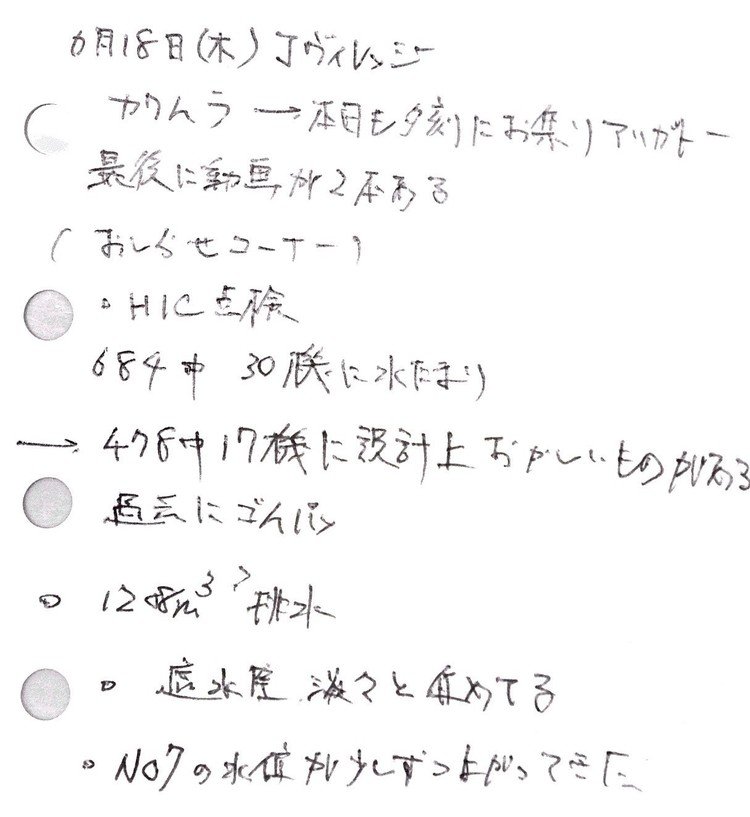 6月18日(木) Jヴィレッジ
カワムラ → 本日も夕刻にお集りアリガトー
最後に動画が2本ある
(おしらせコーナー)
・HIC点検
684中 30機に水たまり
→ 478中17機に設計上おかしいものがある
過去にゴムパン
・128m³? 排水
・底水 淡々と集めてる
・NO7の水位が少しずつ上がってきた